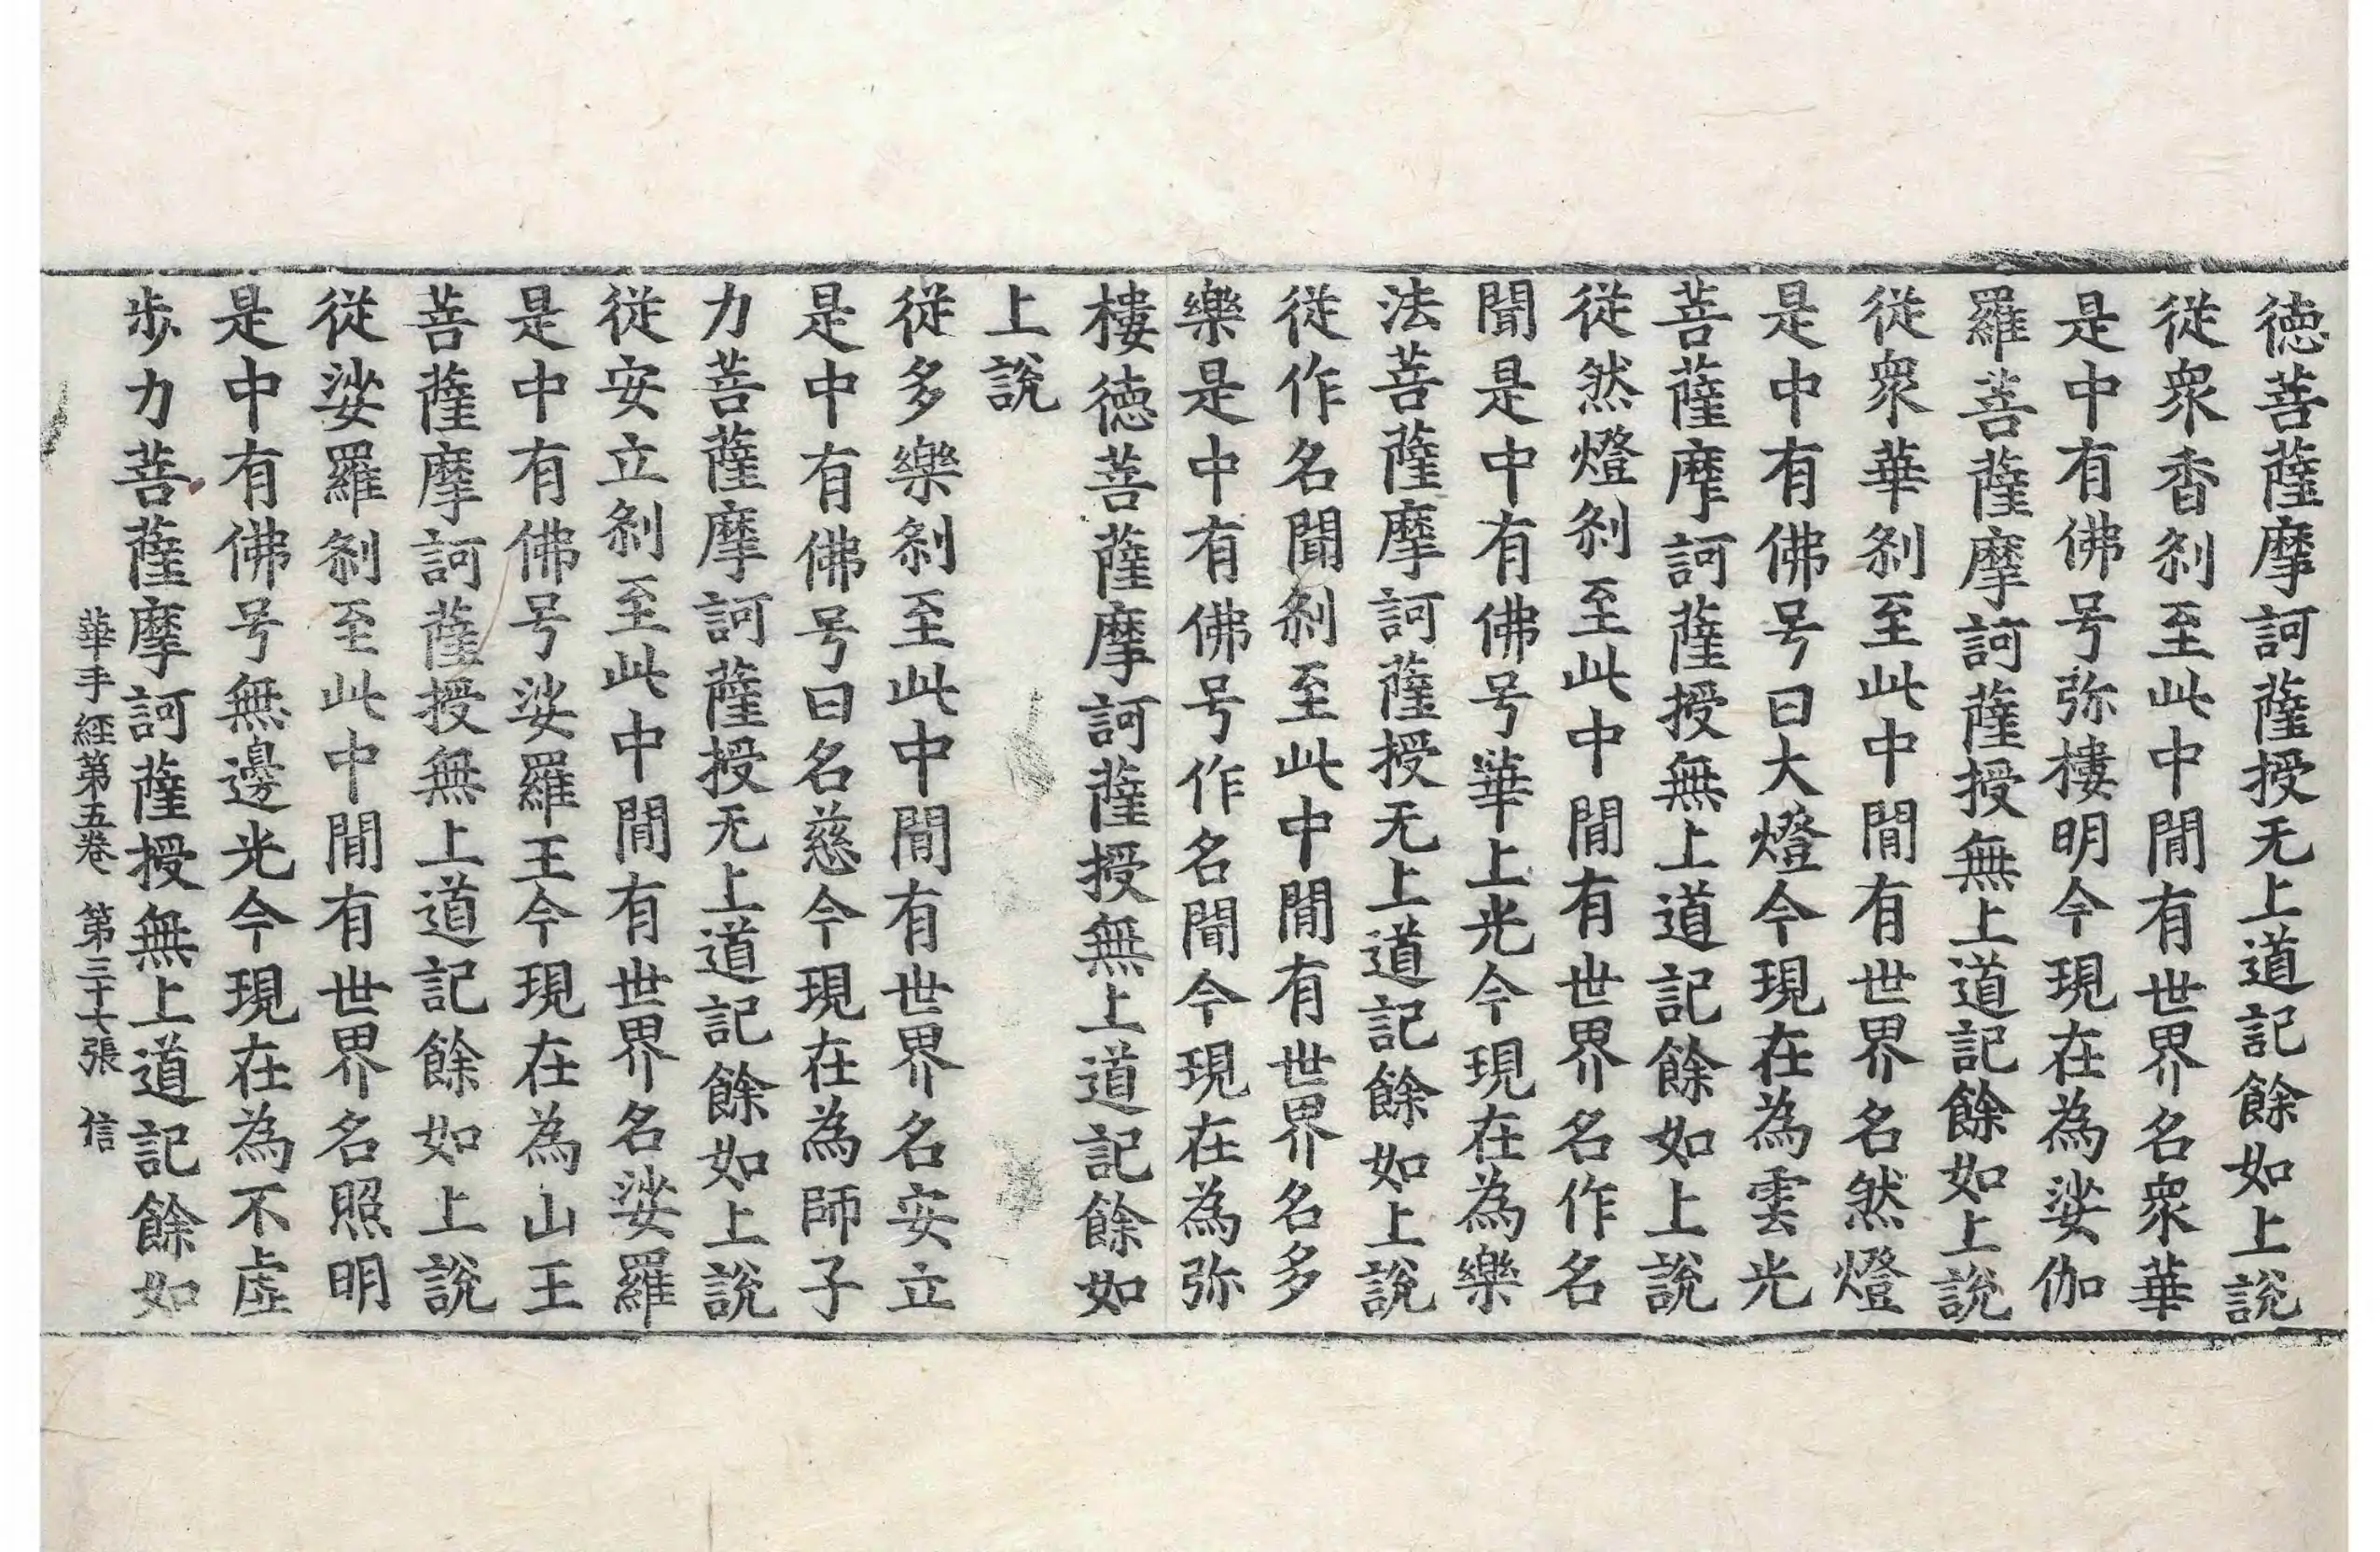 徳菩薩摩訶薩授无上道記餘如上說
従衆香刹至此中閒有世界名衆華
是中有佛号弥樓明今現在為娑伽
羅菩薩摩訶薩授無上道記餘如上說
従衆華刹至此中閒有世界名然燈
是中有佛号曰大燈今現在為雲光
菩薩摩訶薩授無上道記餘如上說
従然燈刹至此中閒有世界名作名
聞是中有佛号華上光今現在為樂
法菩薩摩訶薩授无上道記餘如上說
従作名聞刹至此中閒有世界名多
樂是中有佛号作名聞今現在為弥
樓徳菩薩摩訶薩授無上道記餘如
上說
従多樂刹至此中閒有世界名安立
是中有佛号曰名慈今現在為師子
力菩薩摩訶薩授无上道記餘如上說
従安立刹至此中閒有世界名娑羅
是中有佛号娑羅王今現在為山王
菩薩摩訶薩授無上道記餘如上說
従娑羅刹至此中閒有世界名照明
是中有佛号無邊光今現在為不虛
歩力菩薩摩訶薩授無上道記餘如
華手經第五卷 第三十六張 信